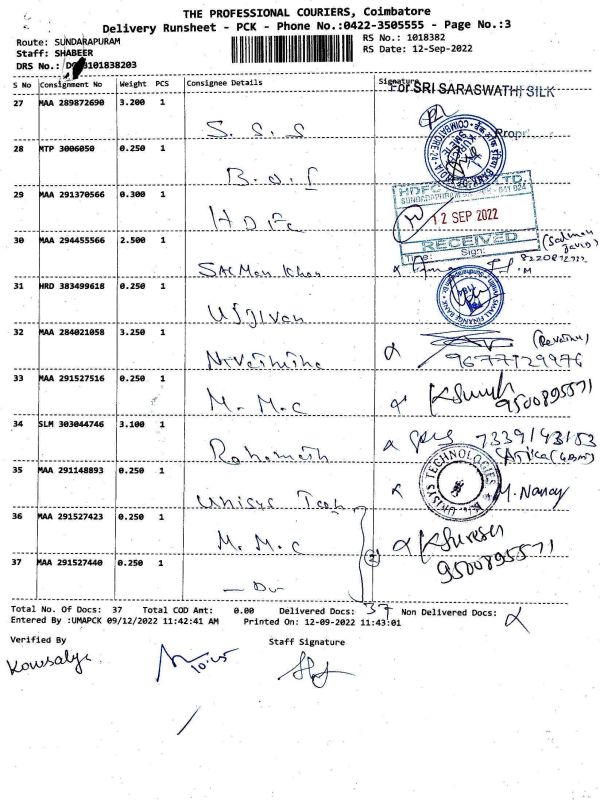 THE PROFESSIONAL COURIERS, Coimbatore
Delivery Runsheet - PCK - Phone No.:0422-3505555 - Page No.:3
Route: SUNDARAPURAM
RS No.: 1018382
Staff: SHABEER
RS Date: 12-Sep-2022
DRS No.: 3101838203
S No Consignment No Weight PCS Consignee Details Signature
For SRI SARASWATHI SILK
27 MAA 289872690 3.200 1
S.S.S
28 MTP 3006050 0.250 1
B.O.I
29 MAA 291370566 0.300 1
12 SEP 2022
30 MAA 294455566 2.500 1
RECEIVED
Salman Khan
31 HRD 383499618 0.250 1
Ujjivan
32 MAA 284021058 3.250 1
(Revathi)
9677729976
33 MAA 291527516 0.250 1
M.M.C
9500895571
34 SLM 303044746 3.100 1
7339143153
35 MAA 291148893 0.250 1
UNISYS TECHNOLOGIES
Unisys Tech
36 MAA 291527423 0.250 1
M.M.C
K Suresh
9500895571
37 MAA 291527440 0.250 1
Total No. Of Docs: 37 Total COD Amt: 0.00 Delivered Docs: 37 Non Delivered Docs:
Entered By :UMAPCK 09/12/2022 11:42:41 AM Printed On: 12-09-2022 11:43:01
Verified By Staff Signature
Kowsalya
10:45